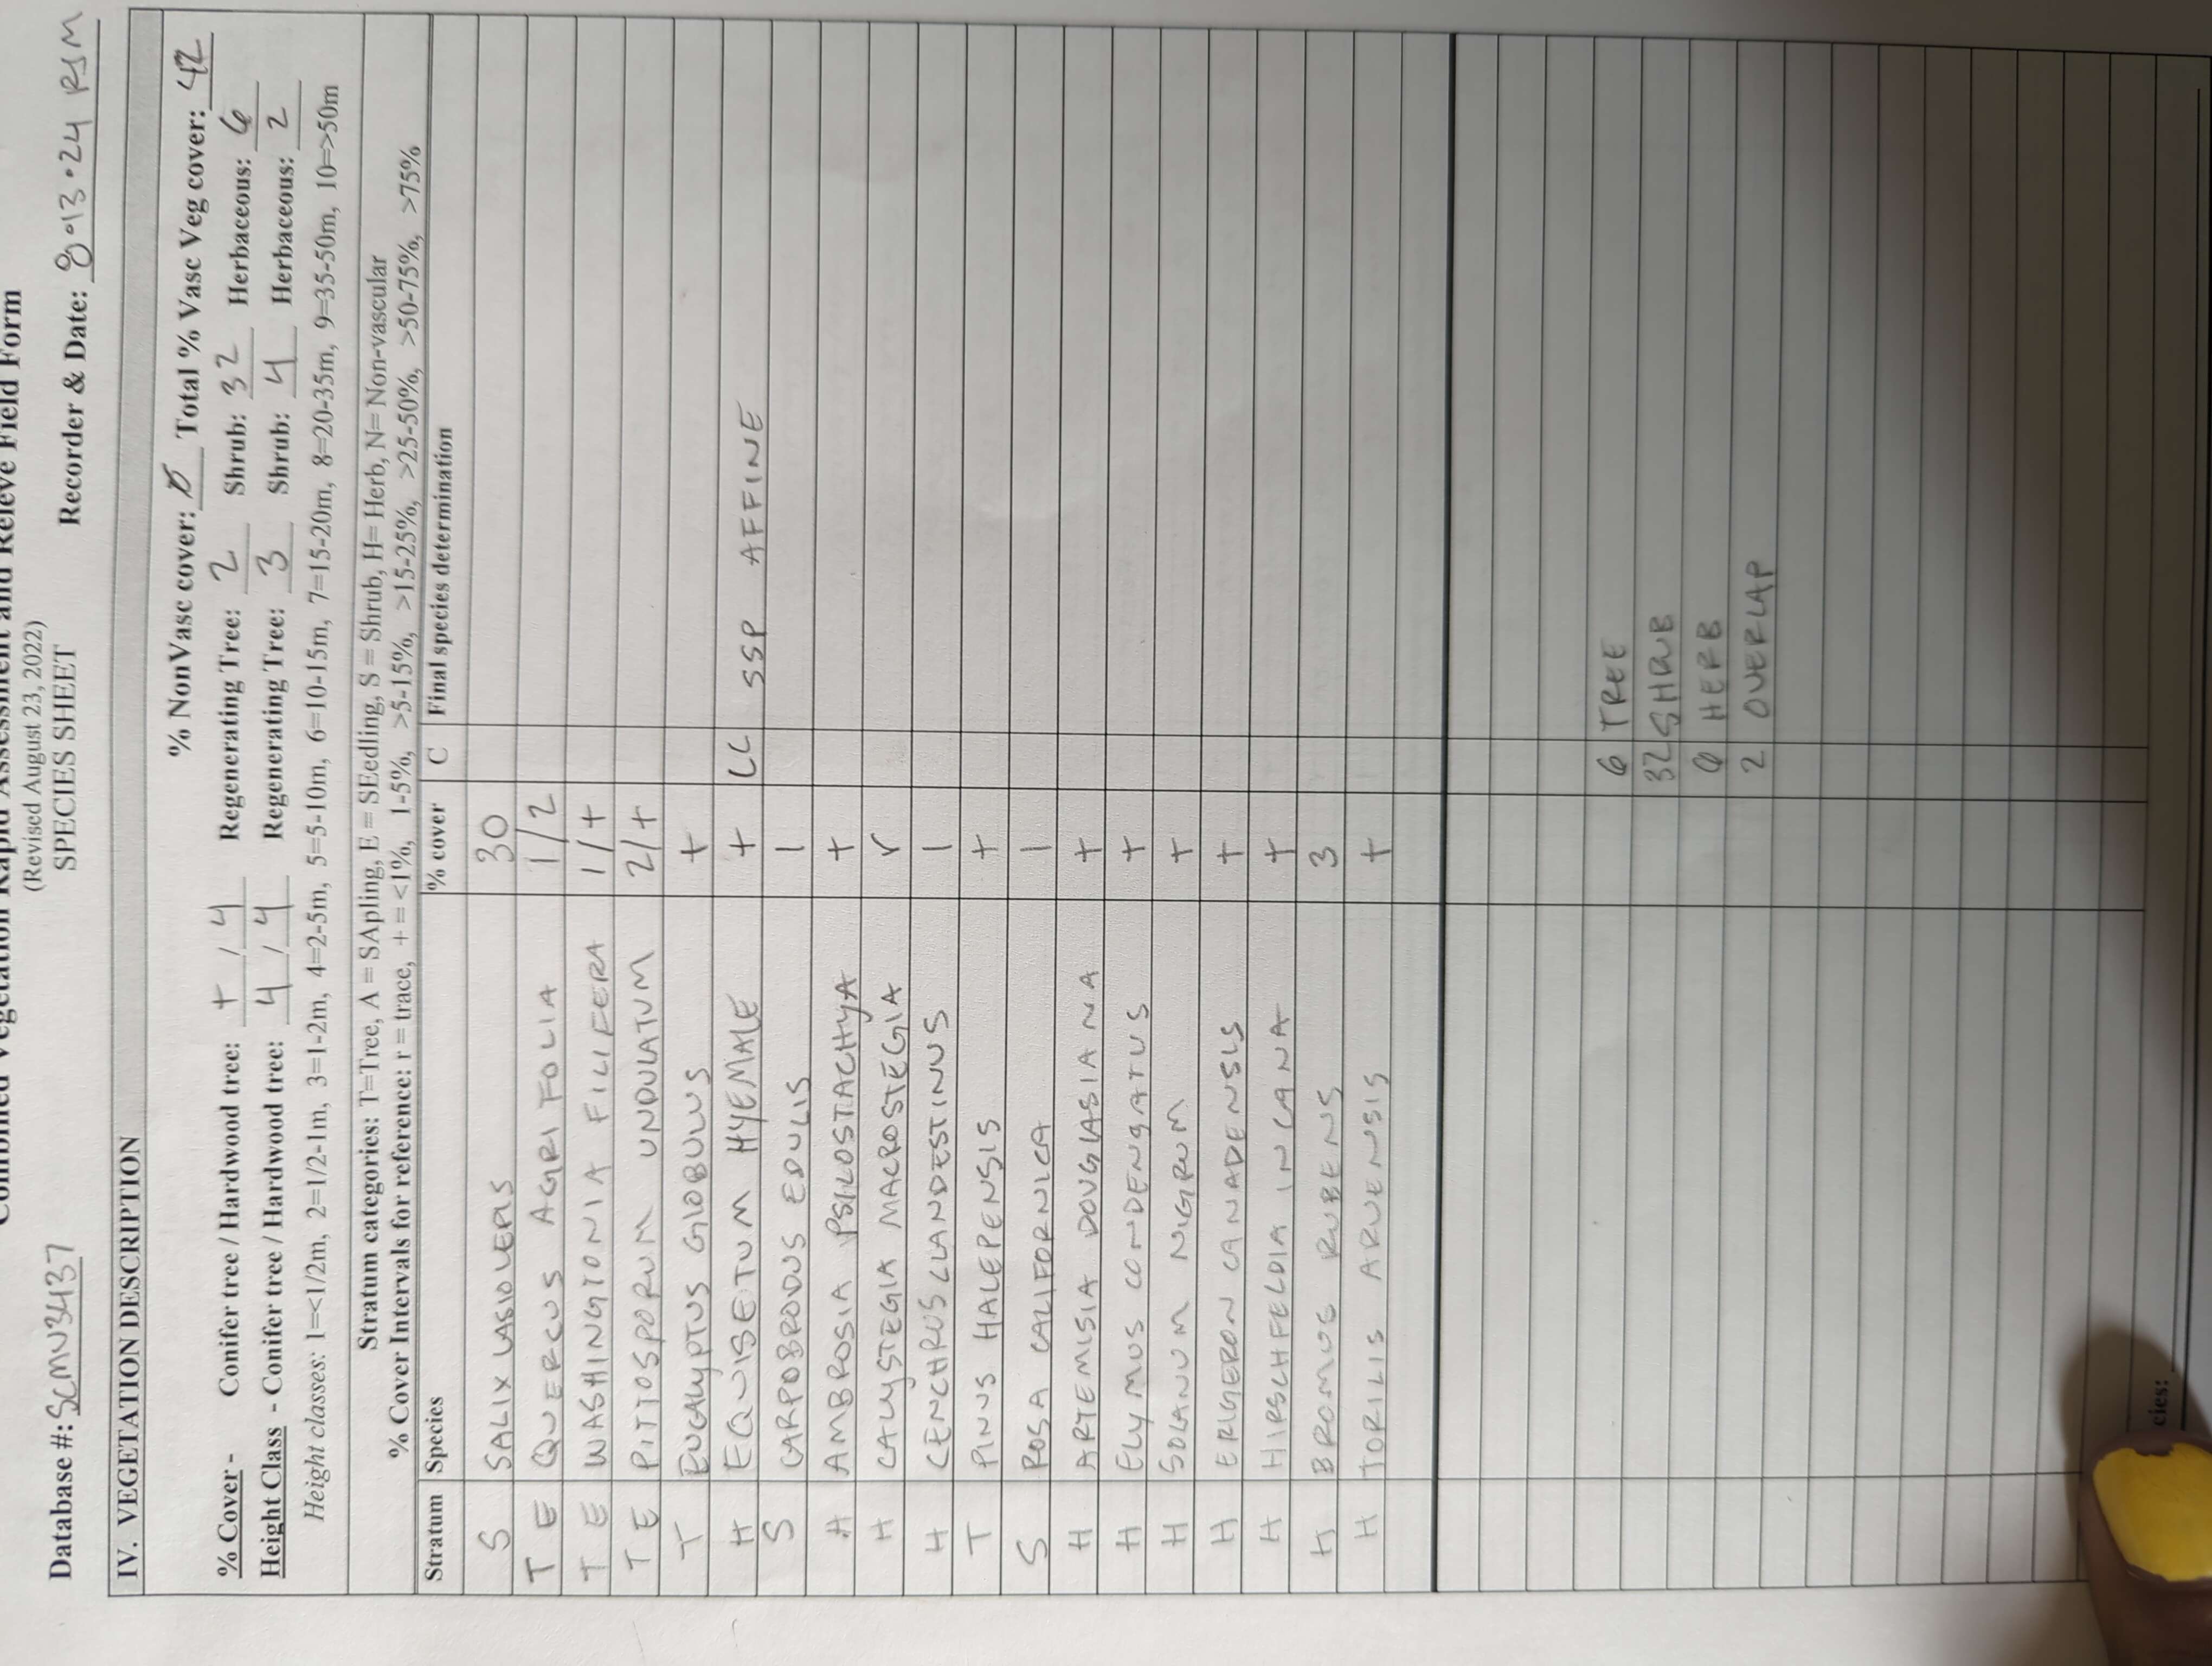 Combined Vegetation Rapid Assessment and Relevé Field Form
(Revised August 23, 2022)
SPECIES SHEET
Database #: SCMV3437 Recorder & Date: 8.13.24 RJM
IV. VEGETATION DESCRIPTION
% NonVasc cover: Ø Total % Vasc Veg cover: 42
% Cover - Conifer tree / Hardwood tree: + / 4 Regenerating Tree: 2 Shrub: 32 Herbaceous: 6
Height Class - Conifer tree / Hardwood tree: 4 / 4 Regenerating Tree: 3 Shrub: 4 Herbaceous: 2
Height classes: 1=<1/2m, 2=1/2-1m, 3=1-2m, 4=2-5m, 5=5-10m, 6=10-15m, 7=15-20m, 8=20-35m, 9=35-50m, 10=>50m
Stratum categories: T=Tree, A = SApling, E = SEedling, S = Shrub, H= Herb, N= Non-vascular
% Cover Intervals for reference: r = trace, + = <1%, 1-5%, >5-15%, >15-25%, >25-50%, >50-75%, >75%
Stratum Species % cover C Final species determination
S SALIX LASIOLEPIS 30
T E QUERCUS AGRIFOLIA 1/2
T E WASHINGTONIA FILIFERA 1/+
T E PITTOSPORUM UNDULATUM 2/+
T EUCALYPTUS GLOBULUS +
H EQUISETUM HYEMALE + CC SSP AFFINE
S CARPOBRODUS EDULIS 1
H AMBROSIA PSILOSTACHYA +
H CALYSTEGIA MACROSTEGIA r
H CENCHRUS CLANDESTINUS 1
T PINUS HALEPENSIS +
S ROSA CALIFORNICA 1
H ARTEMISIA DOUGLASIANA +
H ELYMUS CONDENSATUS +
H SOLANUM NIGRUM +
H ERIGERON CANADENSIS +
H HIRSCHFELDIA INCANA +
H BROMUS RUBENS 3
H TORILIS ARVENSIS +
6 TREE
32 SHRUB
HERB
2 OVERLAP
cies: